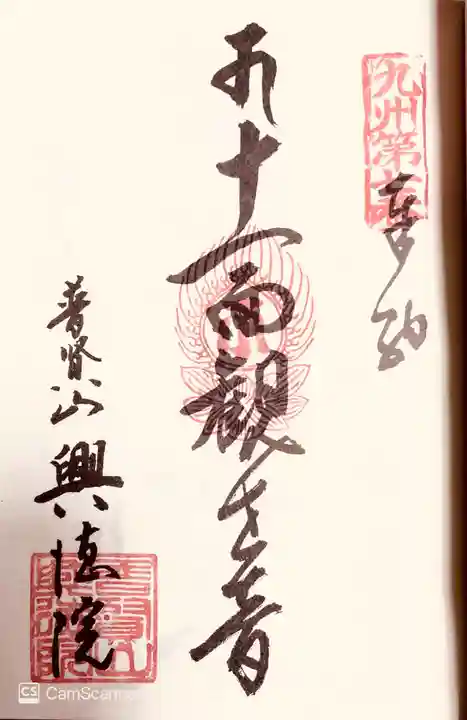 九州第
奉納
十一面観世音
普賢山
興徳院
CS CamScanner